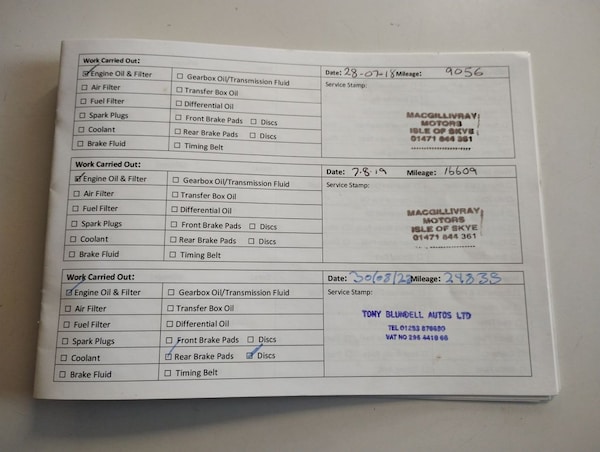 Work Carried Out:
Date: 28-07-18 Mileage: 9056
Engine Oil & Filter
Gearbox Oil/Transmission Fluid
Service Stamp:
Air Filter
Transfer Box Oil
Fuel Filter
Differential Oil
Spark Plugs
Front Brake Pads Discs
Coolant
Rear Brake Pads Discs
Brake Fluid
Timing Belt
MACGILLIVRAY
MOTORS
ISLE OF SKYE
01471 844 361
Work Carried Out:
Date: 7.8.19 Mileage: 16609
Engine Oil & Filter
Gearbox Oil/Transmission Fluid
Service Stamp:
Air Filter
Transfer Box Oil
Fuel Filter
Differential Oil
Spark Plugs
Front Brake Pads Discs
Coolant
Rear Brake Pads Discs
Brake Fluid
Timing Belt
MACGILLIVRAY
MOTORS
ISLE OF SKYE
01471 844 361
Work Carried Out:
Date: Mileage:
Engine Oil & Filter
Gearbox Oil/Transmission Fluid
Service Stamp:
Air Filter
Transfer Box Oil
Fuel Filter
Differential Oil
Spark Plugs
Front Brake Pads Discs
Coolant
Rear Brake Pads Discs
Brake Fluid
Timing Belt
TONY BLUNDELL AUTOS LTD
TEL 01253
VAT NO 295 4419 66